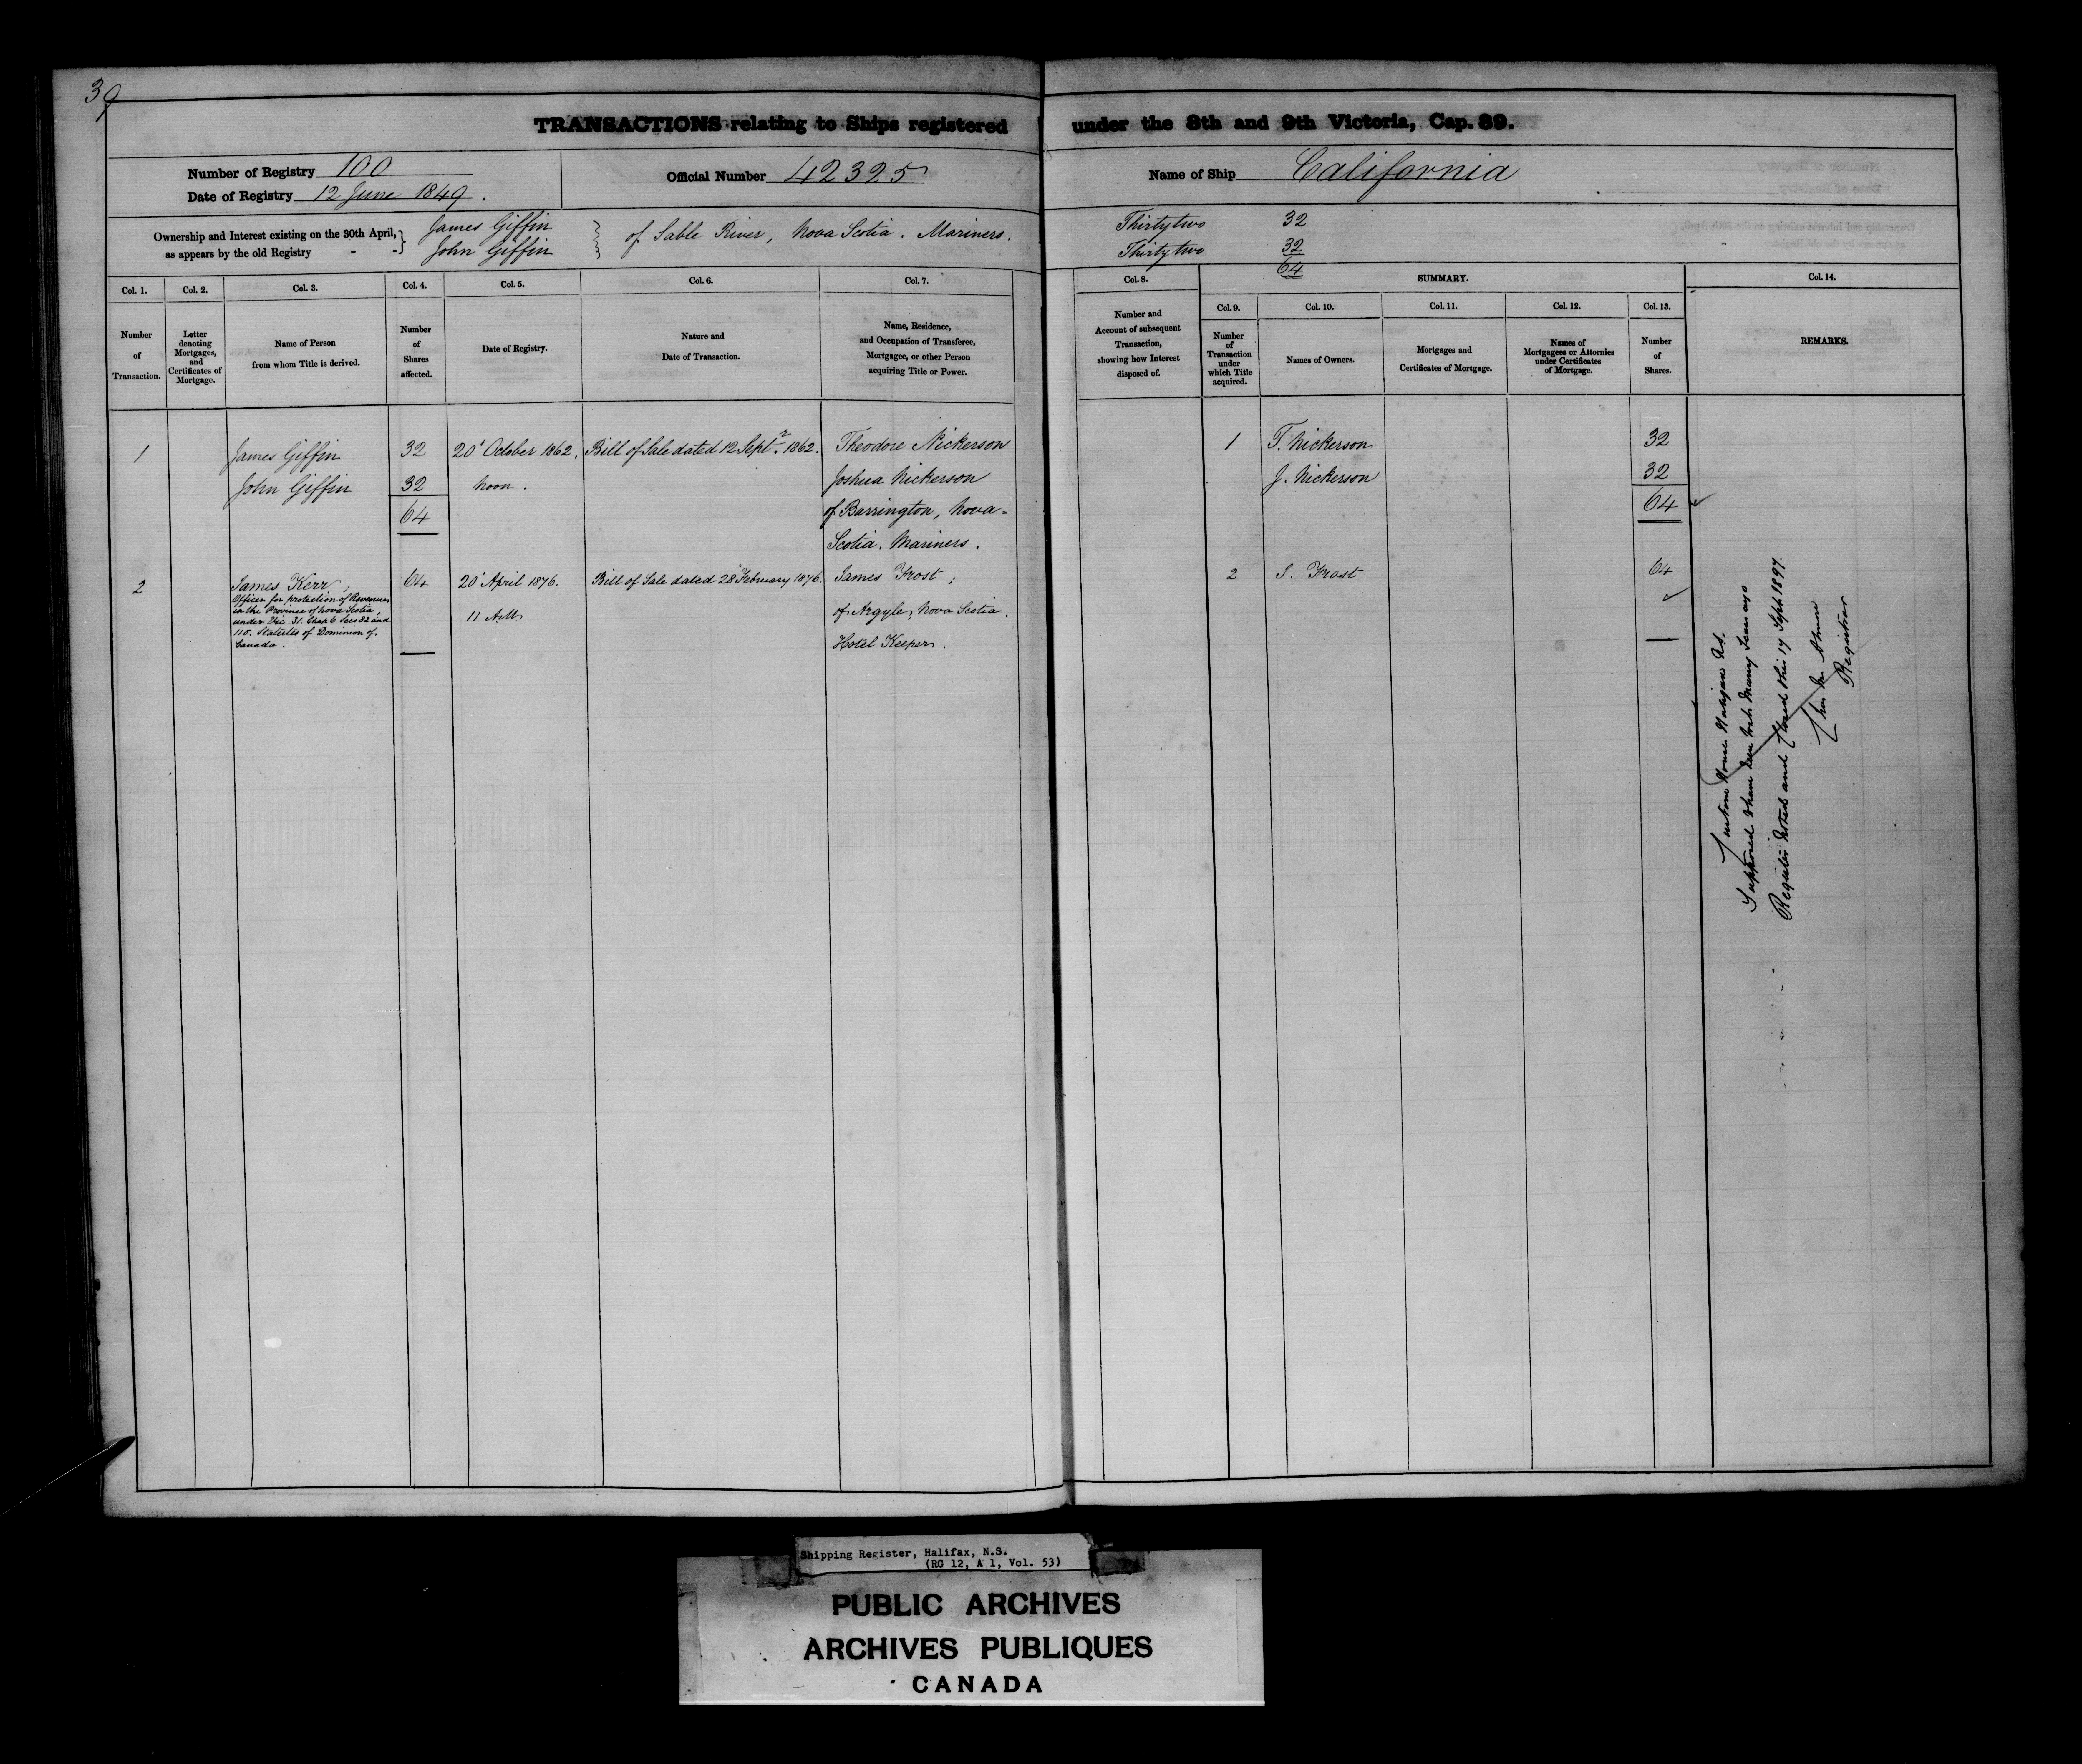 39
TRANSACTIONS relating to Ships registered under the 8th and 9th Victoria, Cap. 89.
Number of Registry 100
Date of Registry 12 June 1849.
Official Number 42325
Name of Ship California
Ownership and Interest existing on the 30th April,
as appears by the old Registry
James Giffin
John Giffin
of Sable River, Nova Scotia. Mariners.
Thirty two 32
Thirty two 32
64
Col. 1.
Number
of
Transaction.
Col. 2.
Letter
denoting
Mortgages,
and
Certificates of
Mortgage.
Col. 3.
Name of Person
from whom Title is derived.
Col. 4.
Number
of
Shares
affected.
Col. 5.
Date of Registry.
Col. 6.
Nature and
Date of Transaction.
Col. 7.
Name, Residence,
and Occupation of Transferee,
Mortgagee, or other Person
acquiring Title or Power.
Col. 8.
Number and
Account of subsequent
Transaction,
showing how Interest
disposed of.
SUMMARY.
Col. 9.
Number
of
Transaction
under
which Title
acquired.
Col. 10.
Names of Owners.
Col. 11.
Mortgages and
Certificates of Mortgage.
Col. 12.
Names of
Mortgagees or Attornies
under Certificates
of Mortgage.
Col. 13.
Number
of
Shares.
Col. 14.
REMARKS.
1
James Giffin
John Giffin
32
32
64
20' October 1862.
Noon.
Bill of Sale dated 12 Septr. 1862.
Theodore Nickerson
Joshua Nickerson
of Barrington, Nova-
Scotia. Mariners.
1
T. Nickerson
J. Nickerson
32
32
64
2
James Kerr,
Officer for protection of Revenue
in the Province of Nova Scotia,
under Vic. 31. Chap 6 Secs 82 and
110. Statutes of Dominion of
Canada.
64
20' April 1876.
11 AM
Bill of Sale dated 28 February 1876.
James Frost;
of Argyle, Nova Scotia.
Hotel Keeper.
2
J. Frost
64
Custom House Halifax NS.
Supposed to have been lost many Years ago
Register noted and Closed this 17 Sept 1897.
Registrar
Shipping Register, Halifax, N.S.
(RG 12, A 1, Vol. 53)
PUBLIC ARCHIVES
ARCHIVES PUBLIQUES
CANADA